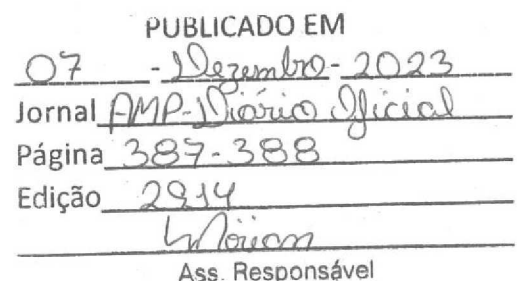 PUBLICADO EM
07 - Dezembro - 2023
Jornal AMP-Diário Oficial
Página 387-388
Edição 2914
Ass. Responsável